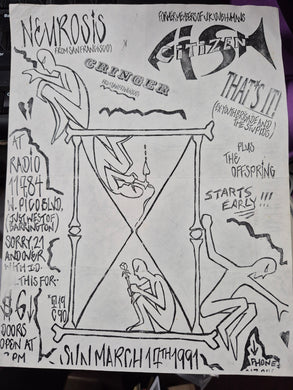 NEUROSIS
(FROM SAN FRANCISCO)
X
CRINGER
FORMER MEMBERS OF UK SUBHUMANS
CITIZEN
FISH
THAT'S IT!
(EX YOUTH BRIGADE AND
THE STUPIDS)
PLUS
THE
OFFSPRING
STARTS
EARLY!!!
AT
RADIO
11784
W. PICO BLVD.
(JUST WEST OF
BARRINGTON)
SORRY, 21
AND OVER
WITH I.D.
...THIS FOR..
$6
DOORS
OPEN AT
PM
SUN MARCH 17TH 1991
PHONE